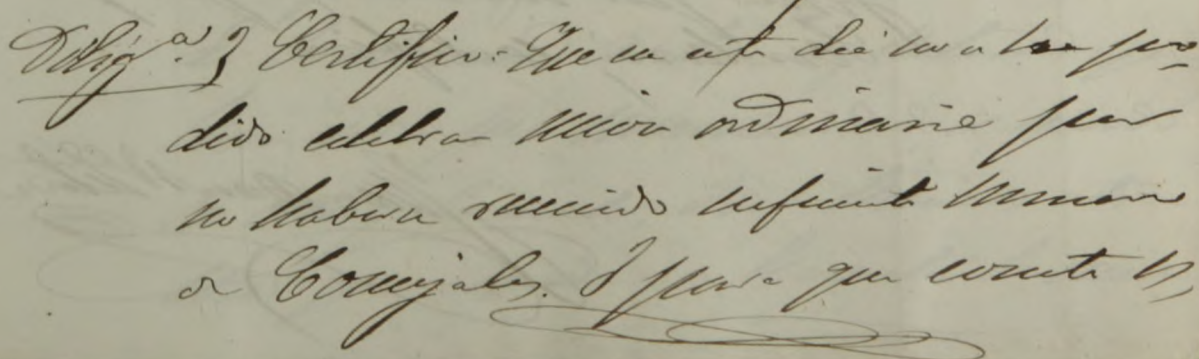 Diligª. } Certifico: Que en este dia no a se po-
dido celebrar sesion ordinaria por
no haberse reunido suficiente numero
de Concejales. Y para que conste